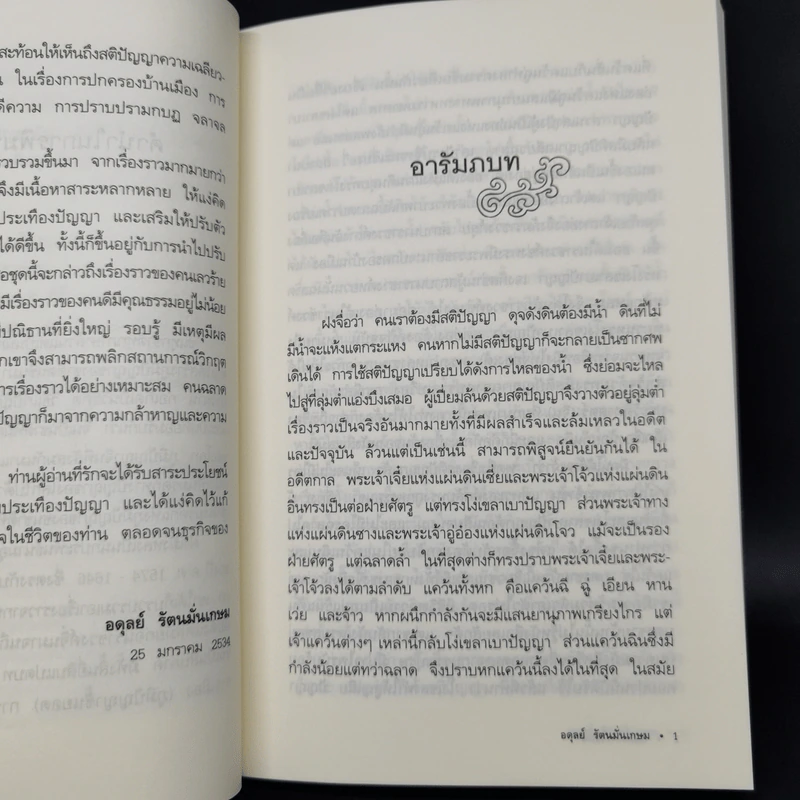 สะท้อนให้เห็นถึงสติปัญญาความเฉลียว-
ในเรื่องการปกครองบ้านเมือง การ
ดีความ การปราบปรามกบฏ จลาจล
รวบรวมขึ้นมา จากเรื่องราวมากมายกว่า
จึงมีเนื้อหาสาระหลากหลาย ให้แง่คิด
ประเทืองปัญญา และเสริมให้ปรับตัว
ได้ดีขึ้น ทั้งนี้ก็ขึ้นอยู่กับการนำไปปรับ
อชุดนี้จะกล่าวถึงเรื่องราวของคนเลวร้าย
มีเรื่องราวของคนดีมีคุณธรรมอยู่ไม่น้อย
ปณิธานที่ยิ่งใหญ่ รอบรู้ มีเหตุมีผล
กเขาจึงสามารถพลิกสถานการณ์วิกฤต
การเรื่องราวได้อย่างเหมาะสม คนฉลาด
ปัญญาก็มาจากความกล้าหาญและความ
ท่านผู้อ่านที่รักจะได้รับสาระประโยชน์
ประเทืองปัญญา และได้แง่คิดไว้แก้
จในชีวิตของท่าน ตลอดจนธุรกิจของ
อดุลย์ รัตนมั่นเกษม
25 มกราคม 2534
อารัมภบท
ฝงจื่อว่า คนเราต้องมีสติปัญญา ดุจดังดินต้องมีน้ำ ดินที่ไม่
มีน้ำจะแห้งแตกระแหง คนหากไม่มีสติปัญญาก็จะกลายเป็นซากศพ
เดินได้ การใช้สติปัญญาเปรียบได้ดังการไหลของน้ำ ซึ่งย่อมจะไหล
ไปสู่ที่ลุ่มต่ำแอ่งบึงเสมอ ผู้เปี่ยมล้นด้วยสติปัญญาจึงวางตัวอยู่ลุ่มต่ำ
เรื่องราวเป็นจริงอันมากมายทั้งที่มีผลสำเร็จและล้มเหลวในอดีต
และปัจจุบัน ล้วนแต่เป็นเช่นนี้ สามารถพิสูจน์ยืนยันกันได้ ใน
อดีตกาล พระเจ้าเจี๋ยแห่งแผ่นดินเซี่ยและพระเจ้าโจ้วแห่งแผ่นดิน
อินทรงเป็นต่อฝ่ายศัตรู แต่ทรงโง่เขลาเบาปัญญา ส่วนพระเจ้าทาง
แห่งแผ่นดินซางและพระเจ้าอู่อ๋องแห่งแผ่นดินโจว แม้จะเป็นรอง
ฝ่ายศัตรู แต่ฉลาดล้ำ ในที่สุดต่างก็ทรงปราบพระเจ้าเจี๋ยและพระ-
เจ้าโจ้วลงได้ตามลำดับ แคว้นทั้งหก คือแคว้นฉี ฉู่ เอียน หาน
เว่ย และจ้าว หากผนึกกำลังกันจะมีแสนยานุภาพเกรียงไกร แต่
เจ้าแคว้นต่างๆ เหล่านี้กลับโง่เขลาเบาปัญญา ส่วนแคว้นฉินซึ่งมี
กำลังน้อยแต่ทว่าฉลาด จึงปราบหกแคว้นนี้ลงได้ในที่สุด ในสมัย
อดุลย์ รัตนมั่นเกษม • 1